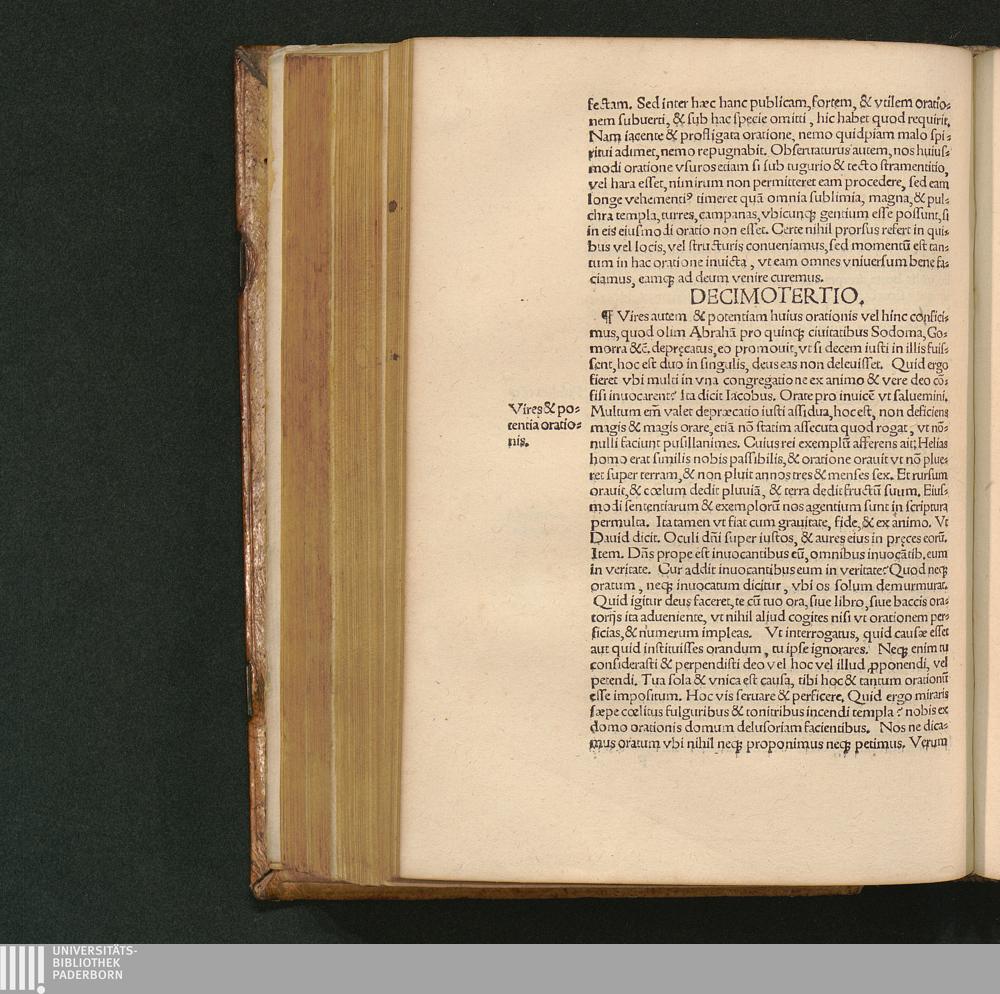 fectam. Sed inter hæc hanc publicam, fortem, & vtilem oratio=
nem subuerti, & sub hac specie omitti, hic habet quod requirit.
Nam iacente & profligata oratione, nemo quidpiam malo spi=
ritui adimet, nemo repugnabit. Obseruaturus autem, nos huius=
modi oratione vsuros etiam si sub tugurio & tecto stramentitio,
vel hara esset, nimirum non permitteret eam procedere, sed eam
longe vehementiꝰ timeret quā omnia sublimia, magna, & pul=
chra templa, turres, campanas, vbicunqꝫ gentium esse possunt, si
in eis eiusmodi oratio non esset. Certe nihil prorsus refert in qui=
bus vel locis, vel structuris conueniamus, sed momentū est tan=
tum in hac oratione inuicta, vt eam omnes vniuersum bene fa=
ciamus, eamqꝫ ad deum venire curemus.
DECIMOTERTIO.
¶ Vires autem & potentiam huius orationis vel hinc conſici=
mus, quod olim Abrahā pro quinqꝫ ciuitatibus Sodoma, Go=
morra &c̄. depręcatus, eo promouit, vt si decem iusti in illis fuis=
sent, hoc est duo in singulis, deus eas non deleuisset. Quid ergo
fieret vbi multi in vna congregatione ex animo & vere deo cō=
fisi inuocarent? Ita dicit Iacobus. Orate pro inuicē vt saluemini.
Vires & po=
tentia oratio=
nis.
Multum em̄ valet depræcatio iusti assidua, hoc est, non deficiens
magis & magis orare, etiā nō statim assecuta quod rogat, vt nō=
nulli faciunt pusillanimes. Cuius rei exemplū afferens ait; Helias
homo erat similis nobis passibilis, & oratione orauit vt nō plue=
ret super terram, & non pluit annos tres & menses sex. Et rursum
orauit, & cœlum dedit pluuiā, & terra dedit fructū suum. Eius=
modi sententiarum & exemplorū nos agentium sunt in scriptura
permulta. Ita tamen vt fiat cum grauitate, fide, & ex animo. Vt
Dauid dicit. Oculi dn̄i super iustos, & aures eius in pręces eorū.
Item. Dn̄s prope est inuocantibus eū, omnibus inuocātib. eum
in veritate. Cur addit inuocantibus eum in veritate? Quod neqꝫ
oratum, neqꝫ inuocatum dicitur, vbi os solum demurmurat.
Quid igitur deus faceret, te cū tuo ora, siue libro, siue baccis ora=
torijs ita adueniente, vt nihil aliud cogites nisi vt orationem per=
ficias, & numerum impleas. Vt interrogatus, quid causæ esset
aut quid instituisses orandum, tu ipse ignorares. Neqꝫ enim tu
considerasti & perpendisti deo vel hoc vel illud ꝓponendi, vel
petendi. Tua sola & vnica est causa, tibi hoc & tantum orationū
esse impositum. Hoc vis seruare & perficere. Quid ergo miraris
sæpe cœlitus fulguribus & tonitribus incendi templa? nobis ex
domo orationis domum delusoriam facientibus. Nos ne dica=
mus oratum vbi nihil neqꝫ proponimus neqꝫ petimus. Verum
UNIVERSITÄTS-
BIBLIOTHEK
PADERBORN